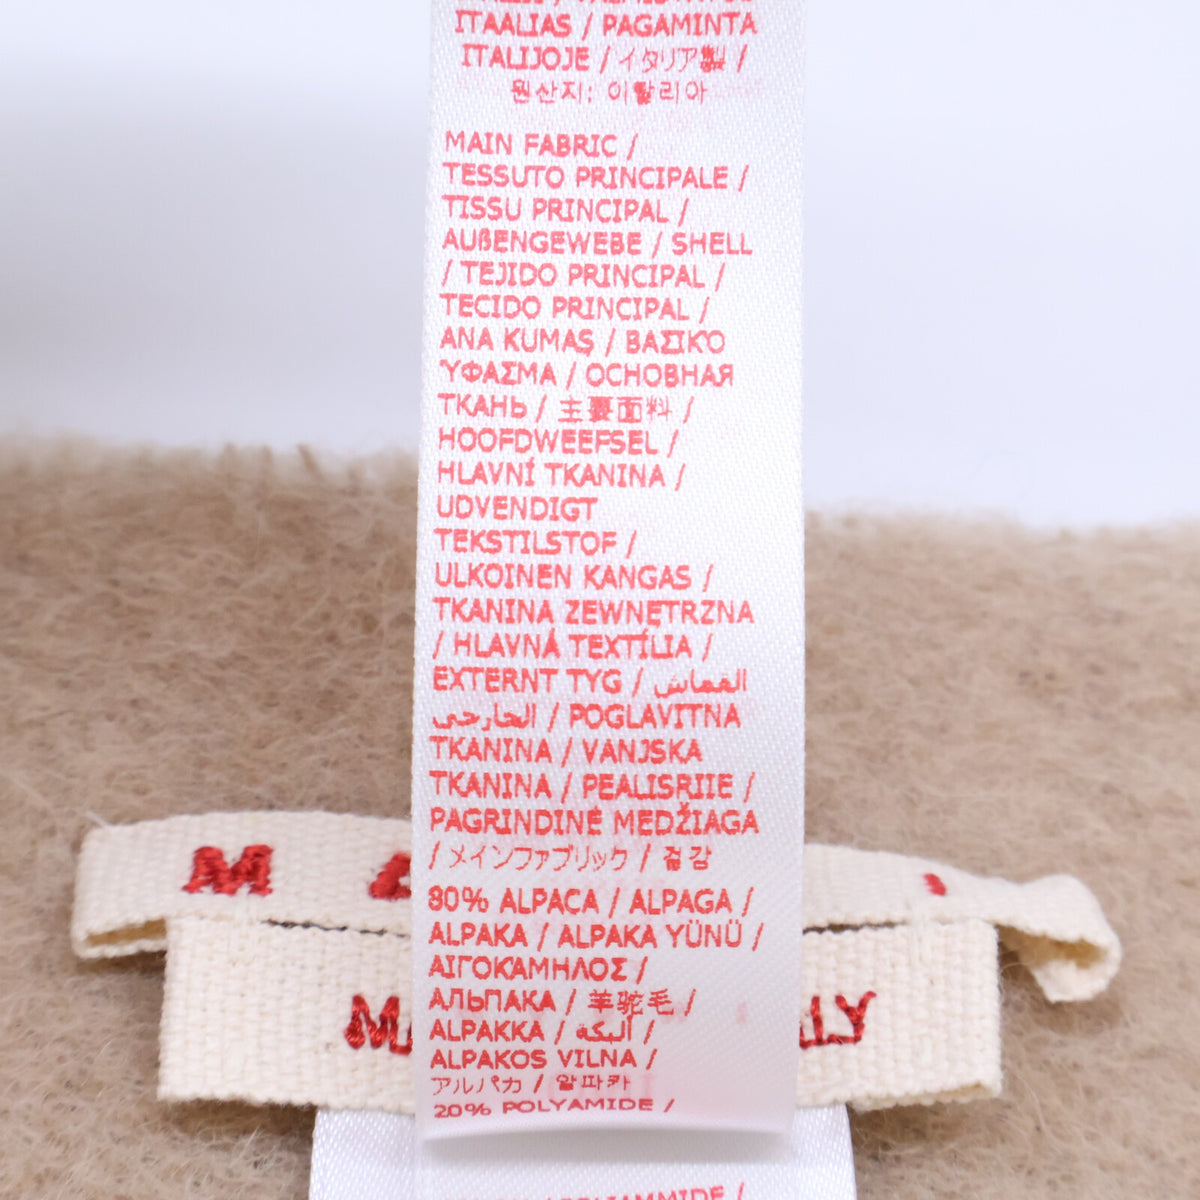 ITAALIAS / PAGAMINTA
ITALIJOJE / イタリア製 /
원산지: 이탈리아
MAIN FABRIC /
TESSUTO PRINCIPALE /
TISSU PRINCIPAL /
AUßENGEWEBE / SHELL
/ TEJIDO PRINCIPAL /
TECIDO PRINCIPAL /
ANA KUMAŞ / ΒΑΣΙΚΌ
ΎΦΑΣΜΑ / ОСНОВНАЯ
ТКАНЬ / 主要面料 /
HOOFDWEEFSEL /
HLAVNÍ TKANINA /
UDVENDIGT
TEKSTILSTOF /
ULKOINEN KANGAS /
TKANINA ZEWNĘTRZNA
/ HLAVNÁ TEXTÍLIA /
EXTERNT TYG / القماش
الخارجي / POGLAVITNA
TKANINA / VANJSKA
TKANINA / PEALISRIIE /
PAGRINDINĖ MEDŽIAGA
/ メインファブリック / 겉감
80% ALPACA / ALPAGA /
ALPAKA / ALPAKA YÜNÜ /
ΑΙΓΟΚΆΜΗΛΟΣ /
АЛЬПАКА / 羊驼毛 /
ALPAKKA / البكة /
ALPAKOS VILNA /
アルパカ / 알파카
20% POLYAMIDE /
M